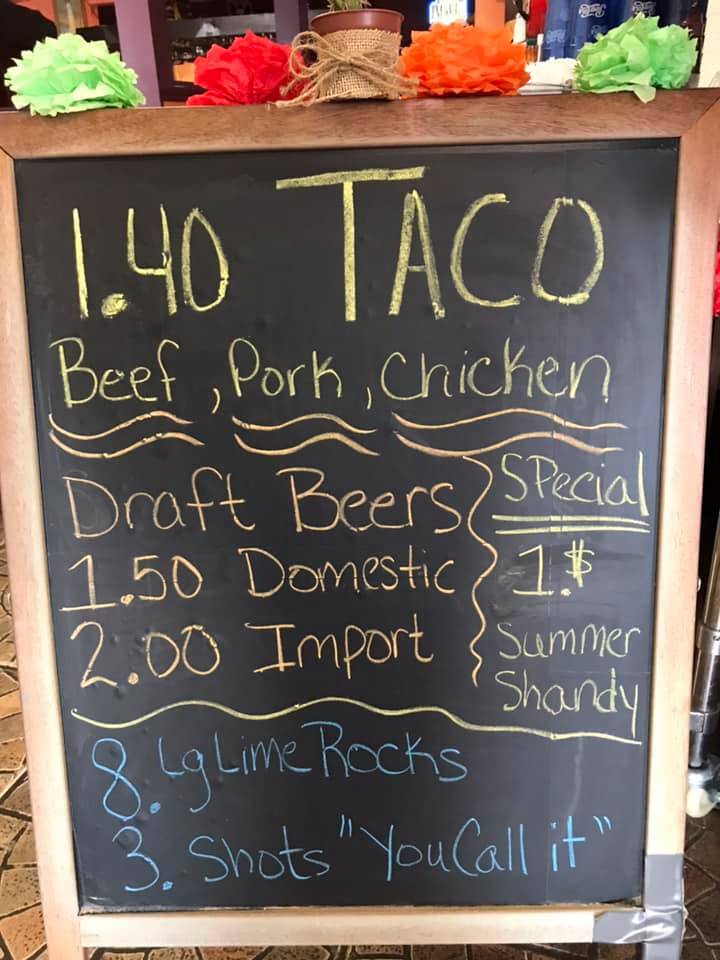 1.40 TACO
Beef, Pork, Chicken
Draft Beers
1.50 Domestic
2.00 Import
Special
1.$
Summer
Shandy
8. Lg Lime Rocks
3. Shots "You Call it"